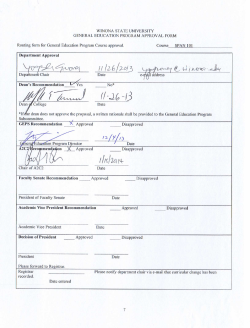 WINONA STATE UNIVERSITY
GENERAL EDUCATION PROGRAM APPROVAL FORM
Routing form for General Education Program Course approval. Course SPAN 101
Department Approval
11/26/2013
Department Chair Date e-mail address
Dean's Recommendation Yes No*
11-26-13
Dean of College Date
*If the dean does not approve the proposal, a written rationale shall be provided to the General Education Program Subcommittee.
GEPS Recommendation X Approved Disapproved
General Education Program Director Date
A2C2 Recommendation X Approved Disapproved
Chair of A2C2 Date
Faculty Senate Recommendation Approved Disapproved
President of Faculty Senate Date
Academic Vice President Recommendation Approved Disapproved
Academic Vice President Date
Decision of President Approved Disapproved
President Date
Please forward to Registrar.
Registrar Please notify department chair via e-mail that curricular change has been
recorded.
Date entered
7